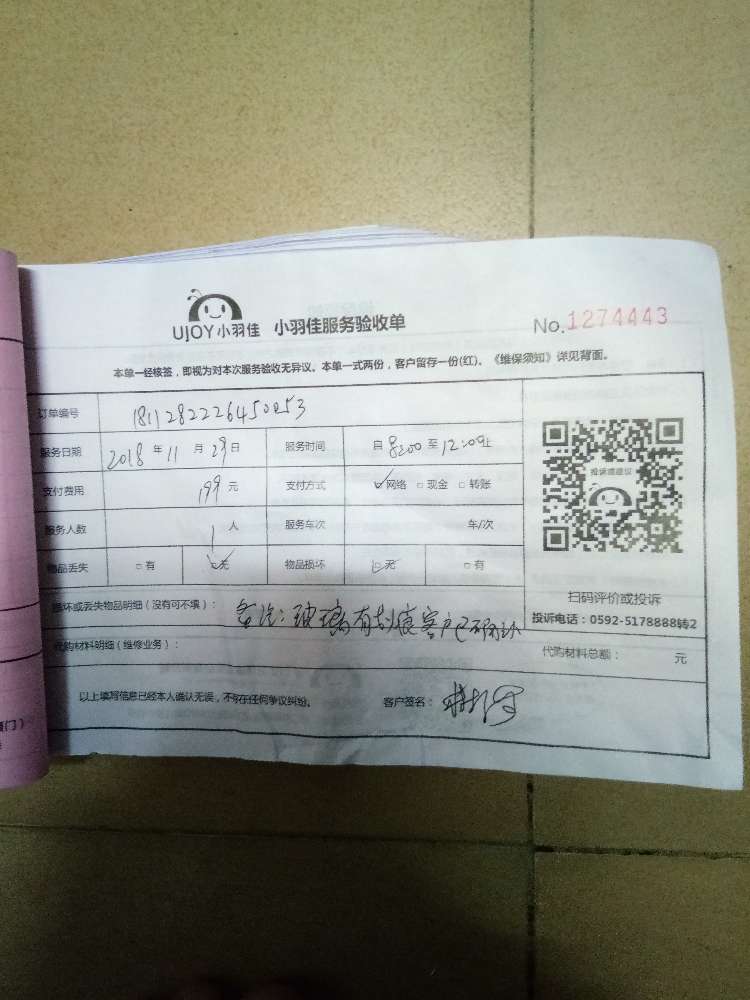 UJOY小羽佳 小羽佳服务验收单 No.1274443
本单一经核签，即视为对本次服务验收无异议。本单一式两份，客户留存一份(红)。《维保须知》详见背面。
订单编号 1811282226450053
服务日期 2018年11月29日 服务时间 自8:00至12:00止
支付费用 199元 支付方式 ☑网络 □现金 □转账
服务人数 1人 服务车次 车/次
物品丢失 □有 ☑无 物品损坏 ☑无 □有
投诉或建议
扫码评价或投诉
投诉电话：0592-5178888转2
损坏或丢失物品明细（没有可不填）： 备注：玻璃有刮痕客户已确认
代购材料明细（维修业务）： 代购材料总额： 元
以上填写信息已经本人确认无误，不存在任何争议纠纷。 客户签名：
门）